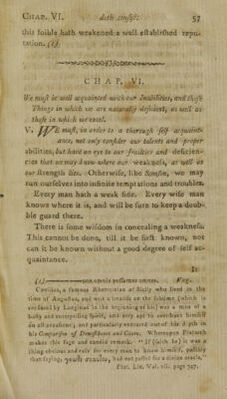 CHAP. VI. doth consist. 57
this foible hath weakened a well established repu-
tation. (1).
CHAP. VI.
We must be well acquainted with our Inabilities, and those
Things in which we are naturally deficient, as well as
those in which we excel.
V. WE must, in order to a thorough self acquaint-
ance, not only consider our talents and proper
abilities, but have an eye to our frailties and deficien-
cies that we may know where our weakness, as well as
our strength lies. Otherwise, like Samson, we may
run ourselves into infinite temptations and troubles.
Every man hath a weak side. Every wise man
knows where it is, and will be sure to keep a doub-
le guard there.
There is some wisdom in concealing a weakness.
This cannot be done, till it be first known, nor
can it be known without a good degree of self ac-
quaintance.
It
(1) non omnia possumus omnes. Virg.
Cecilius, a famous Rhetorician of Sicily who lived in the
time of Augustus, and wrote a treatise on the sublime (which is
censured by Longinus in the beginning of his) was a man of a
hasty and enterprising spirit, and very apt to overshoot himself
on all occasions; and particularly ventured out of his depth in
his Comparison of Demosthenes and Cicero. Whereupon Plutarch
makes this sage and candid remark. "If (saith he) it was a
thing obvious and easy for every man to know himself, possibly
that saying, had not passed for a divine oracle."
Plut. Liv. Vol. vii. page 347.